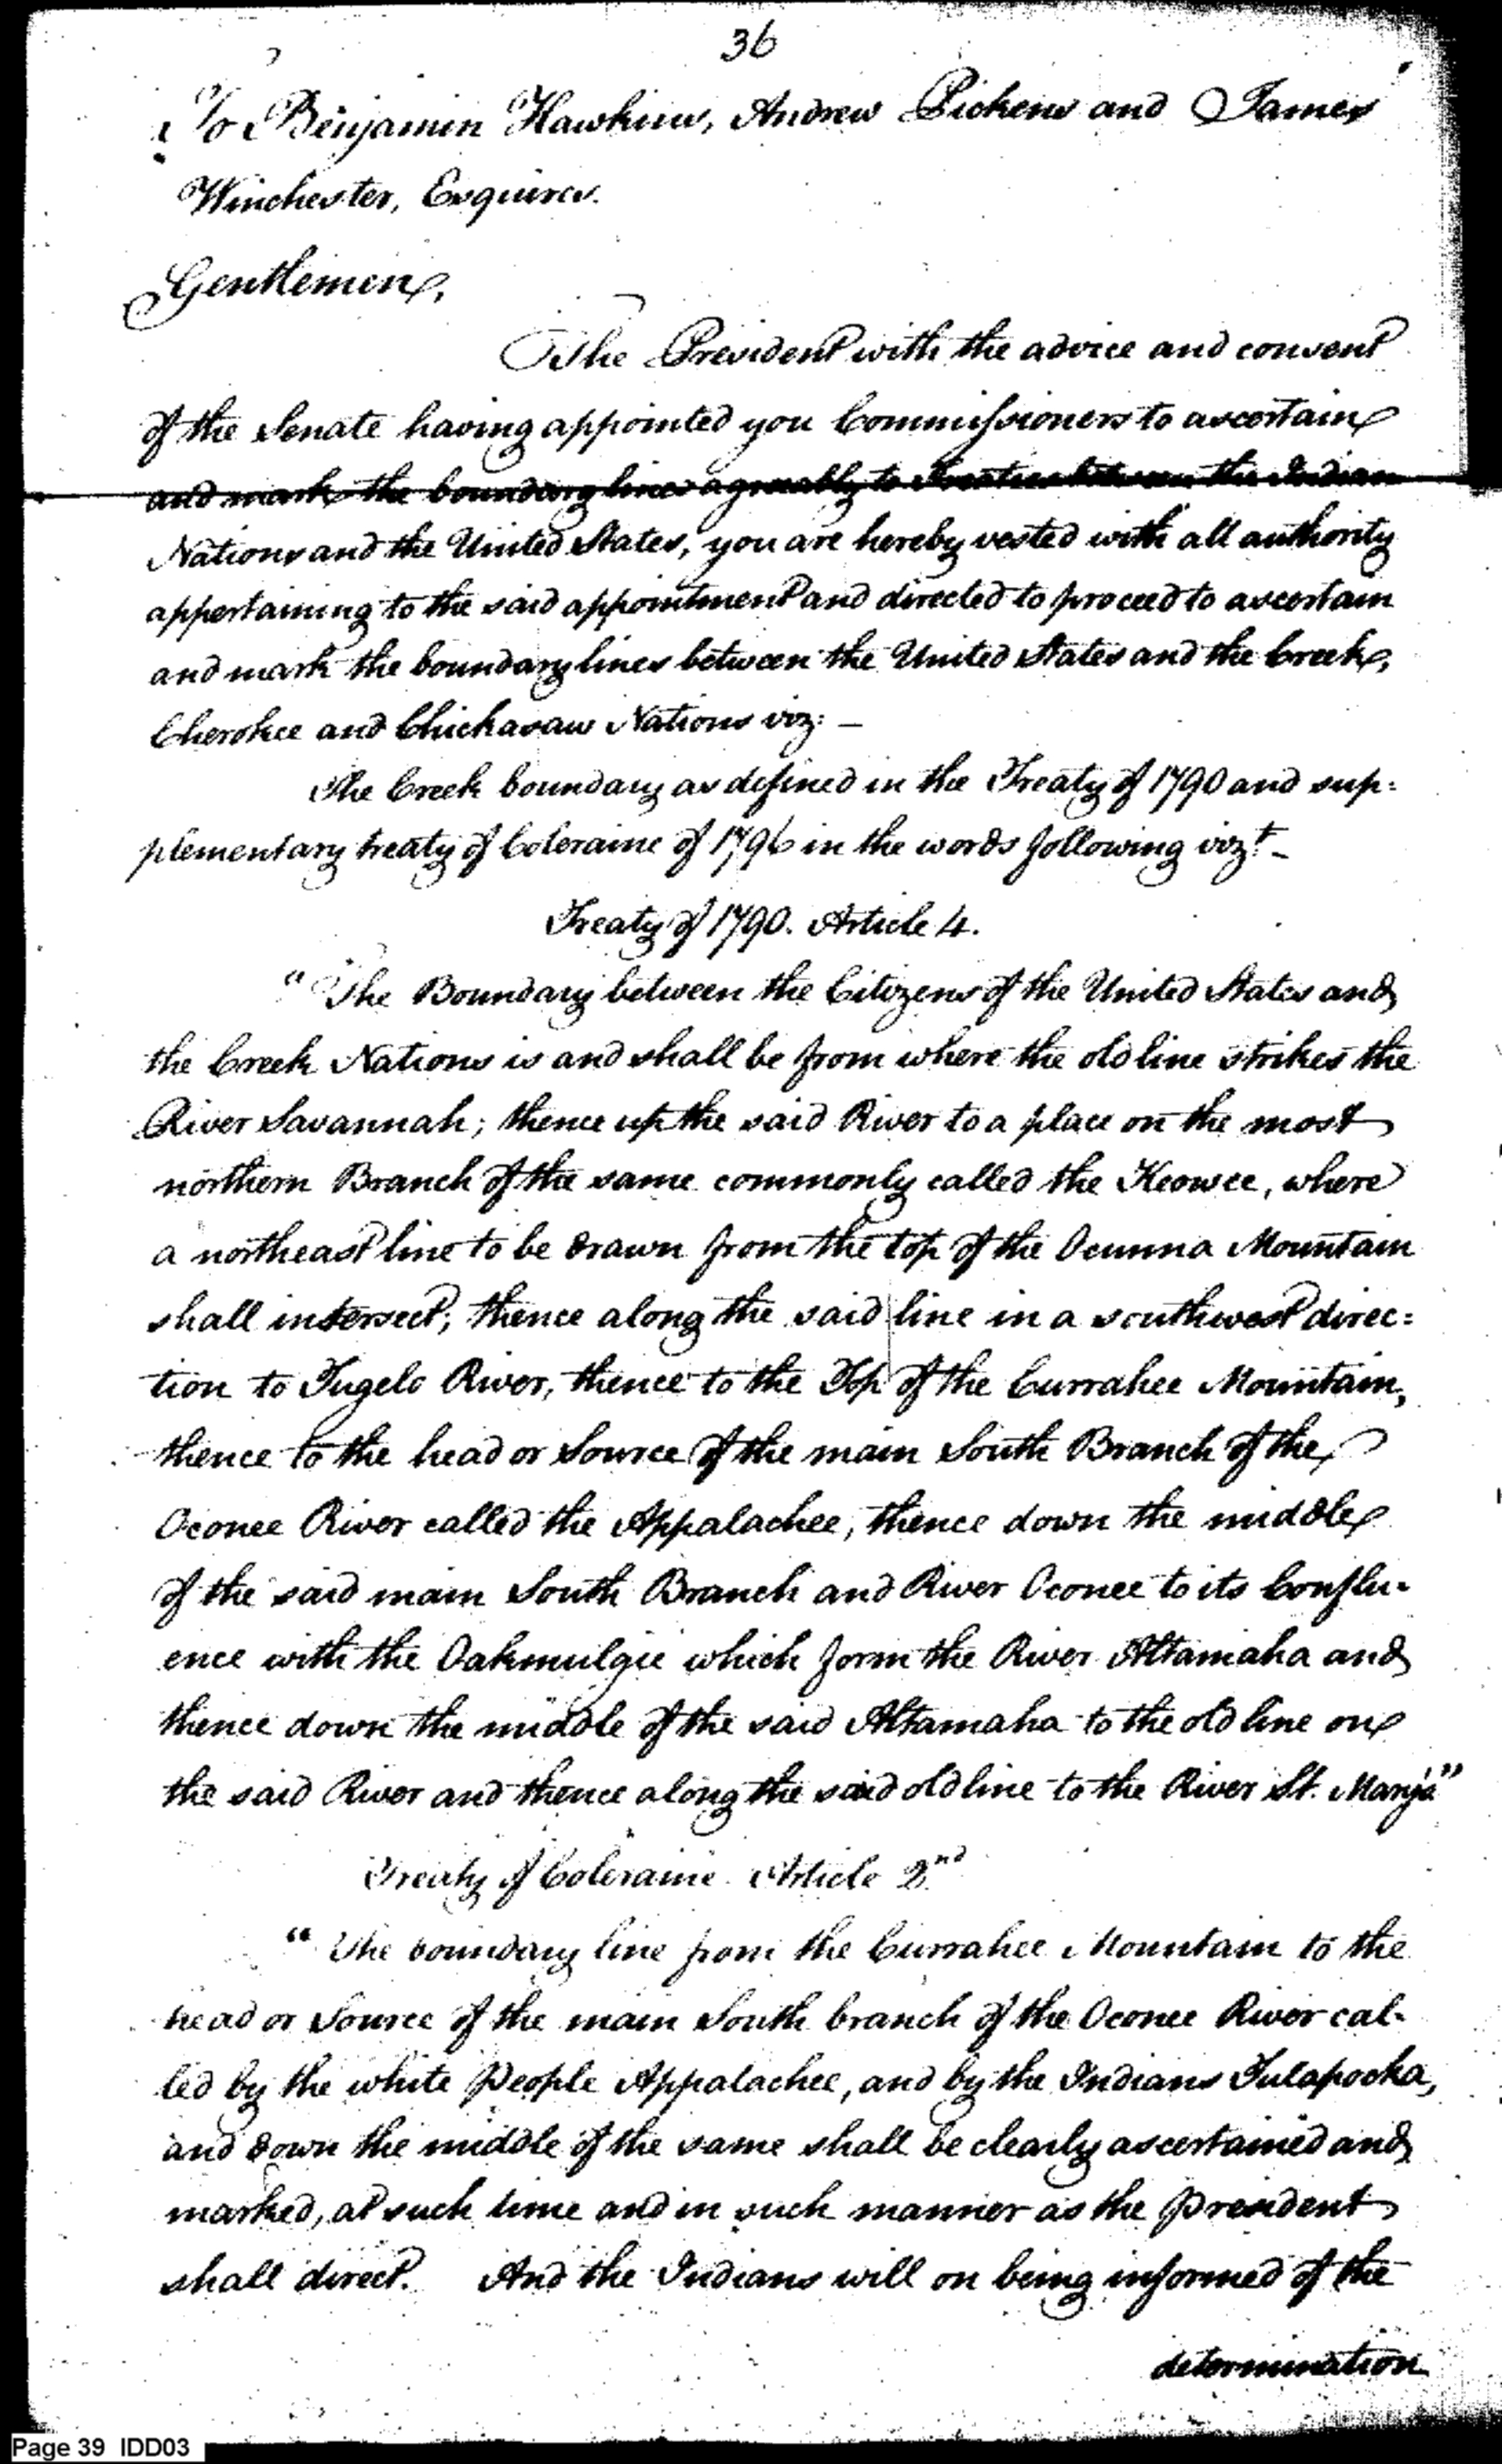 36
To Benjamin Hawkins, Andrew Pickens and James
Winchester, Esquires.
Gentlemen,
The President with the advice and consent
of the Senate having appointed you Commissioners to ascertain
and mark the boundary lines agreeably to Treaties between the Indian
Nations and the United States, you are hereby vested with all authority
appertaining to the said appointment and directed to proceed to ascertain
and mark the boundary lines between the United States and the Creek,
Cherokee and Chickasaw Nations viz: —
The Creek boundary as defined in the Treaty of 1790 and sup:
plementary treaty of Coleraine of 1796 in the words following vizt —
Treaty of 1790. Article 4.
"The Boundary between the Citizens of the United States and
the Creek Nations is and shall be from where the old line strikes the
River Savannah; thence up the said River to a place on the most
northern Branch of the same commonly called the Keowee, where
a northeast line to be drawn from the top of the Ocunna Mountain
shall intersect; thence along the said line in a southwest direc:
tion to Tugelo River, thence to the Top of the Currahee Mountain,
thence to the head or Source of the main South Branch of the
Oconee River called the Appalachee; thence down the middle
of the said main South Branch and River Oconee to its Conflu-
ence with the Oakmulgie which form the River Altamaha and
thence down the middle of the said Altamaha to the old line on
the said River and thence along the said old line to the River St. Mary's"
Treaty of Coleraine Article 2nd
"The boundary line from the Currahee Mountain to the
head or Source of the main South branch of the Oconee River cal-
led by the white People Appalachee, and by the Indians Tulapocka,
and down the middle of the same shall be clearly ascertained and
marked, at such time and in such manner as the President
shall direct. And the Indians will on being informed of the
determination
Page 39 IDD03